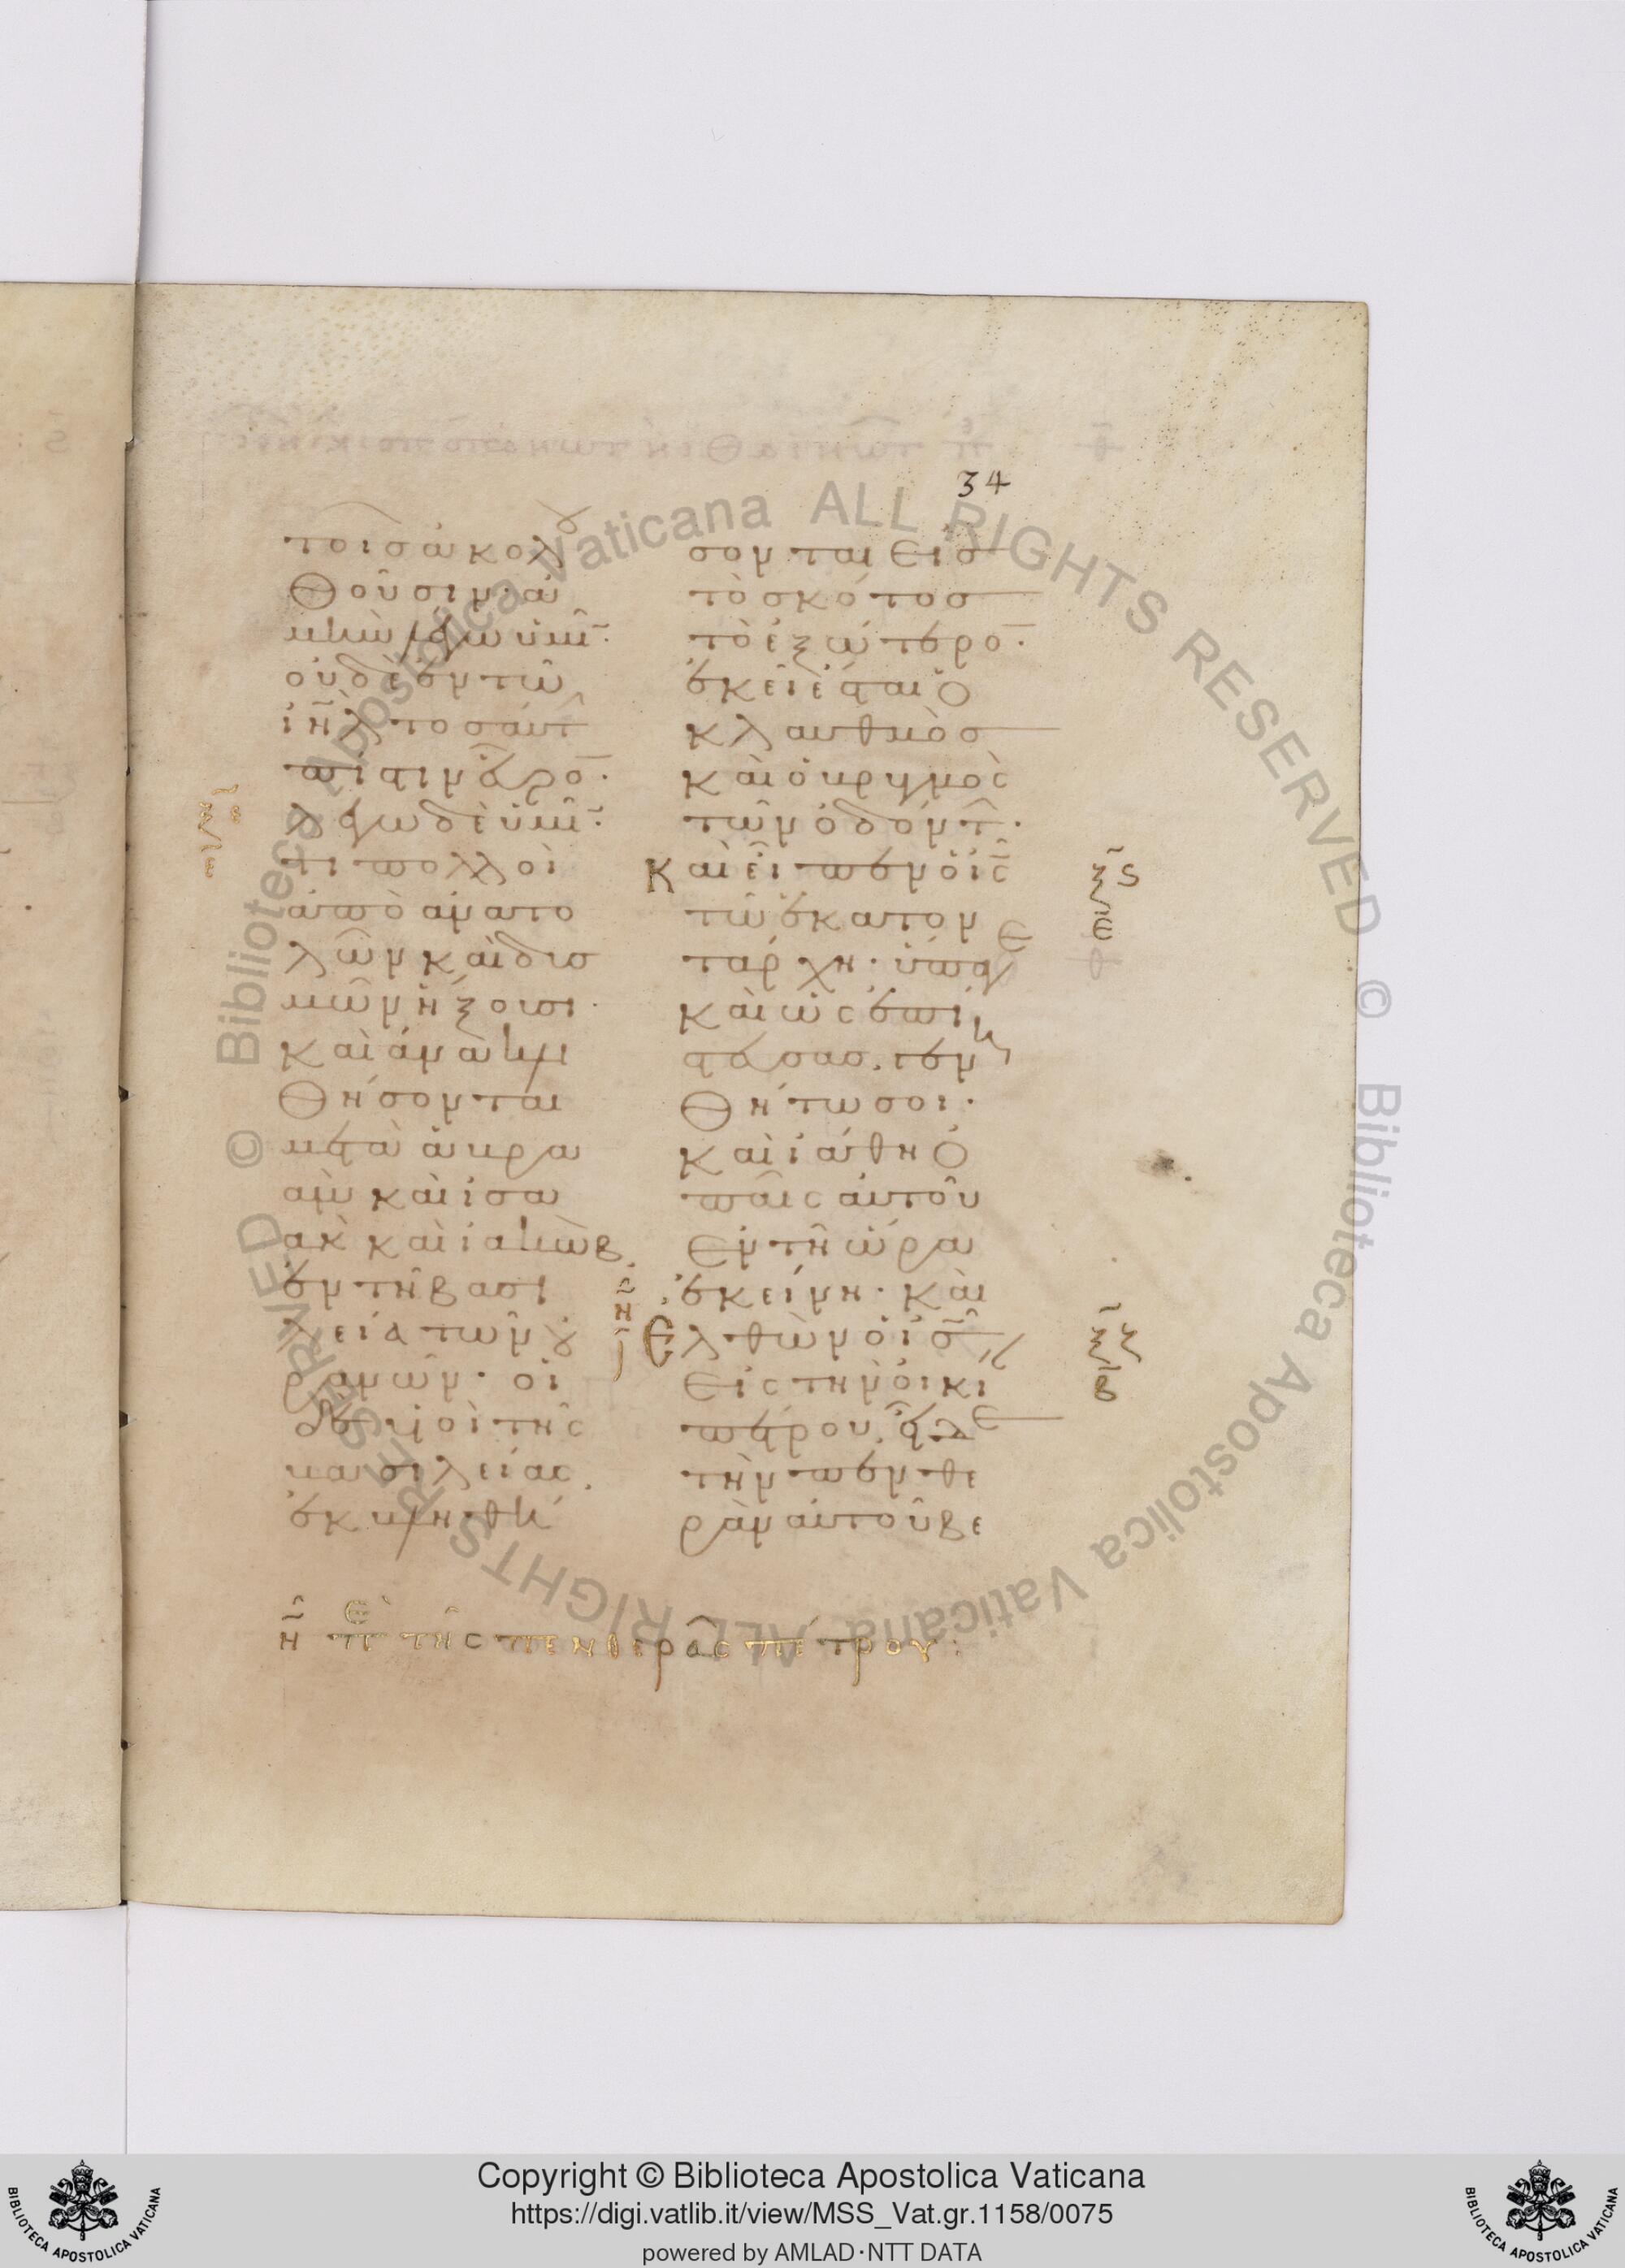 34
τοῖσ ἀκολου
θοῦσιν· ἀ
μὴν λέγω ὑμῖν·
οὐδὲ ἐν τῶ
ιηλ τοσαύτην
πίστιν εὗρον·
λέγω δὲ ὑμῖν·
ὅτι πολλοὶ
ἀπὸ ἀνατο
λῶν καὶ δυσ
μῶν ἥξουσι·
καὶ ἀνακλι
θήσονται
μετὰ ἀβρα
ὰμ καὶ ἰσα
ὰκ καὶ ἰακὼβ
ἐν τῆ βασι
λεία τῶν οὐ
ρανῶν· οἱ
δὲ υἱοὶ τῆς
βασιλείας,
ἐκβληθή
σονται εἰσ
τὸ σκότοσ
τὸ ἐξώτερον·
ἐκεῖ ἔσται ὁ
κλαυθμὸσ
καὶ ὁ βρυγμὸς
τῶν ὀδόντων·
ξς
ε
Καὶ εἶπεν ὁ ις
τῶ ἑκατον
τάρχη· ὕπαγε
καὶ ὡς ἐπί
στευσασ, γενη
θήτω σοι·
καὶ ἰάθη ὁ
παῖς αὐτοῦ
ἐν τῆ ὥρα
ἐκείνη· καὶ
η
ξζ
β
Ἐλθὼν ὁ ισ
εἰς τὴν οἰκίαν
πέτρου, εἶδε
τὴν πενθε
ρὰν αὐτοῦ βε
η πε τῆς πενθερᾶς πέτρου:
Copyright © Biblioteca Apostolica Vaticana
https://digi.vatlib.it/view/MSS_Vat.gr.1158/0075
powered by AMLAD·NTT DATA
BIBLIOTECA APOSTOLICA VATICANA
BIBLIOTECA APOSTOLICA VATICANA
© Biblioteca Apostolica Vaticana ALL RIGHTS RESERVED
© Biblioteca Apostolica Vaticana ALL RIGHTS RESERVED